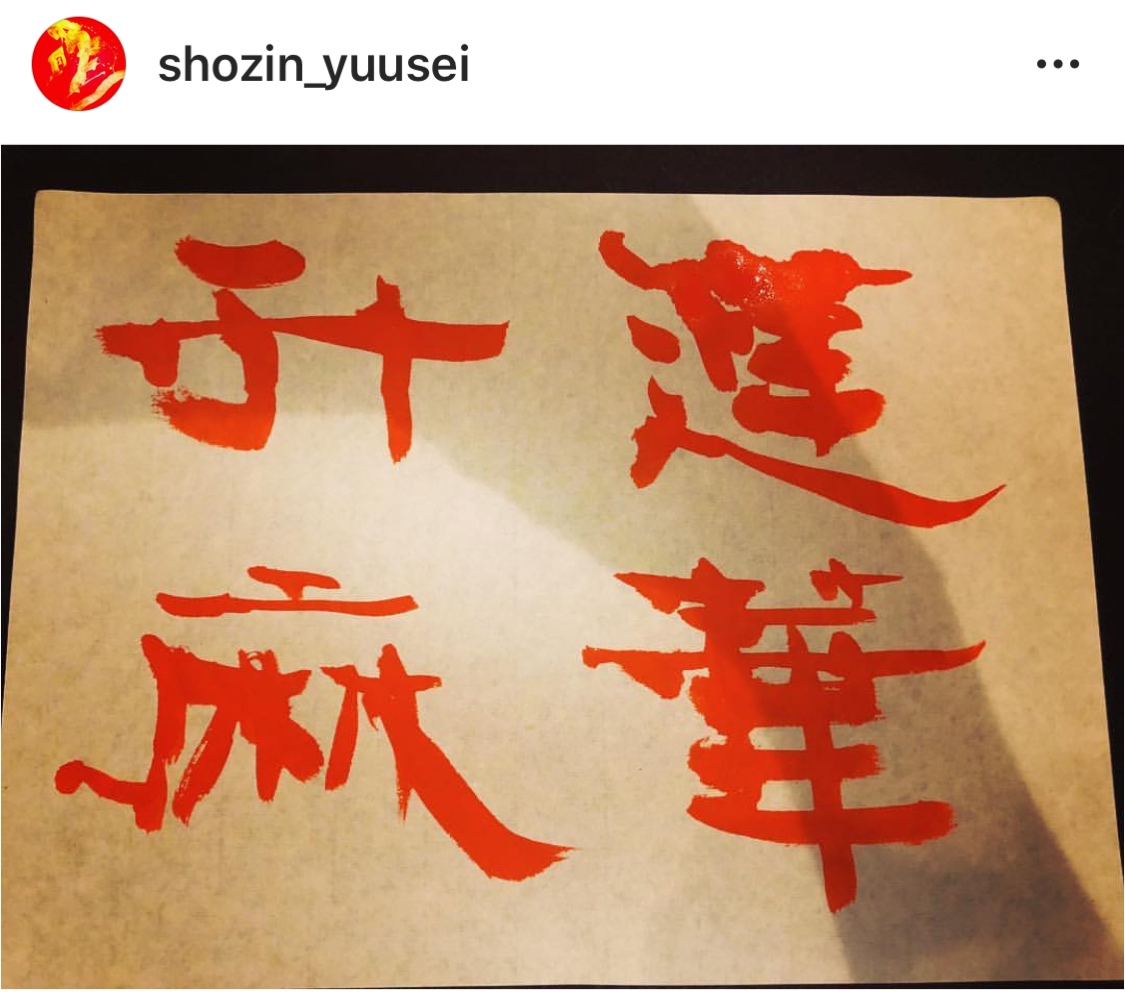 shozin_yuusei
蓮華
升麻